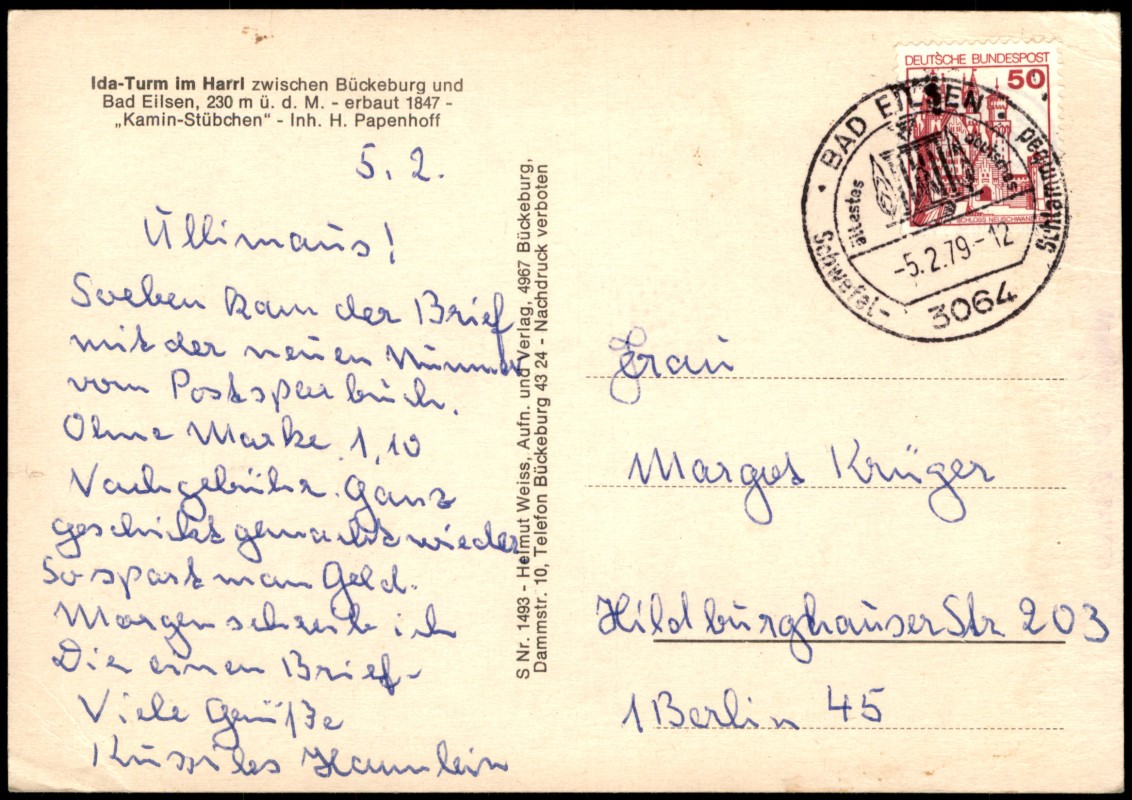 Ida-Turm im Harrl zwischen Bückeburg und
Bad Eilsen, 230 m ü. d. M. - erbaut 1847 -
„Kamin-Stübchen" - Inh. H. Papenhoff
5. 2.
Üllimaus!
Soeben kam der Brief
mit der neuen Nummer
vom Postsparbuch.
Ohne Marke 1,10
Nachgebühr. Ganz
geschickt gemacht wieder
So spart man Geld.
Morgen schreib ich
Dir einen Brief-
Viele Grüße
Küssiles
S Nr. 1493 - Helmut Weiss, Aufn. und Verlag, 4967 Bückeburg,
Dammstr. 10, Telefon Bückeburg 43 24 - Nachdruck verboten
DEUTSCHE BUNDESPOST
50
SCHLOSS NEUSCHWANSTEIN
• BAD EILSEN •
ältestes deutsches
Schwefel- Schlammbad
-5.2.79-12
3064
Frau
Margot Krüger
Hildburghauser Str 203
1 Berlin 45